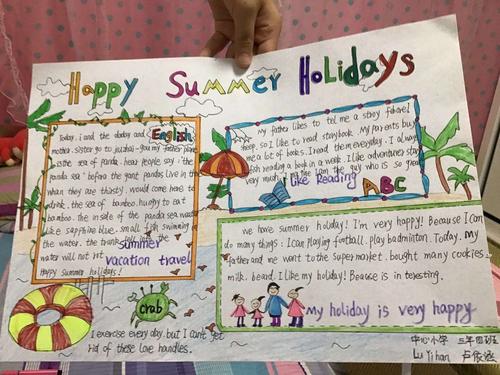 Happy Summer Holidays
English
Today. i and the daddy and
mother. sister go to jiuzhai-gou my father plan
is the sea of panda. hear people say. "the
panda sea" before the giant pandas live in the
when they are thirsty. would come here to
drink. the sea of bamboo. hungry to eat
bamboo. the inside of the panda sea water
like sapphire blue. small fish swimming
the water. the trunk in the
water will not rot
Happy Summer holidays!
summer
vacation travel
My father likes to tell me a story
so I like to read storybook. My parents buy
me a lot of books. I read them everyday. I always
fish reading a book in a week. I like adventurer story
very much. I the guy who is so great
like Reading
ABC
we have summer holiday! I'm very happy! Because I can
do many things. I can playing football. play badminton. Today. My
father and me went to the supermarket. bought many cookies.
milk. beard. I like my holiday! Beaause is in teresting.
My holiday is very happy
crab
I exercise every day. but I can't get
rid of these love handles.
中心小学 三年四班
Lu Yihan 卢依涵